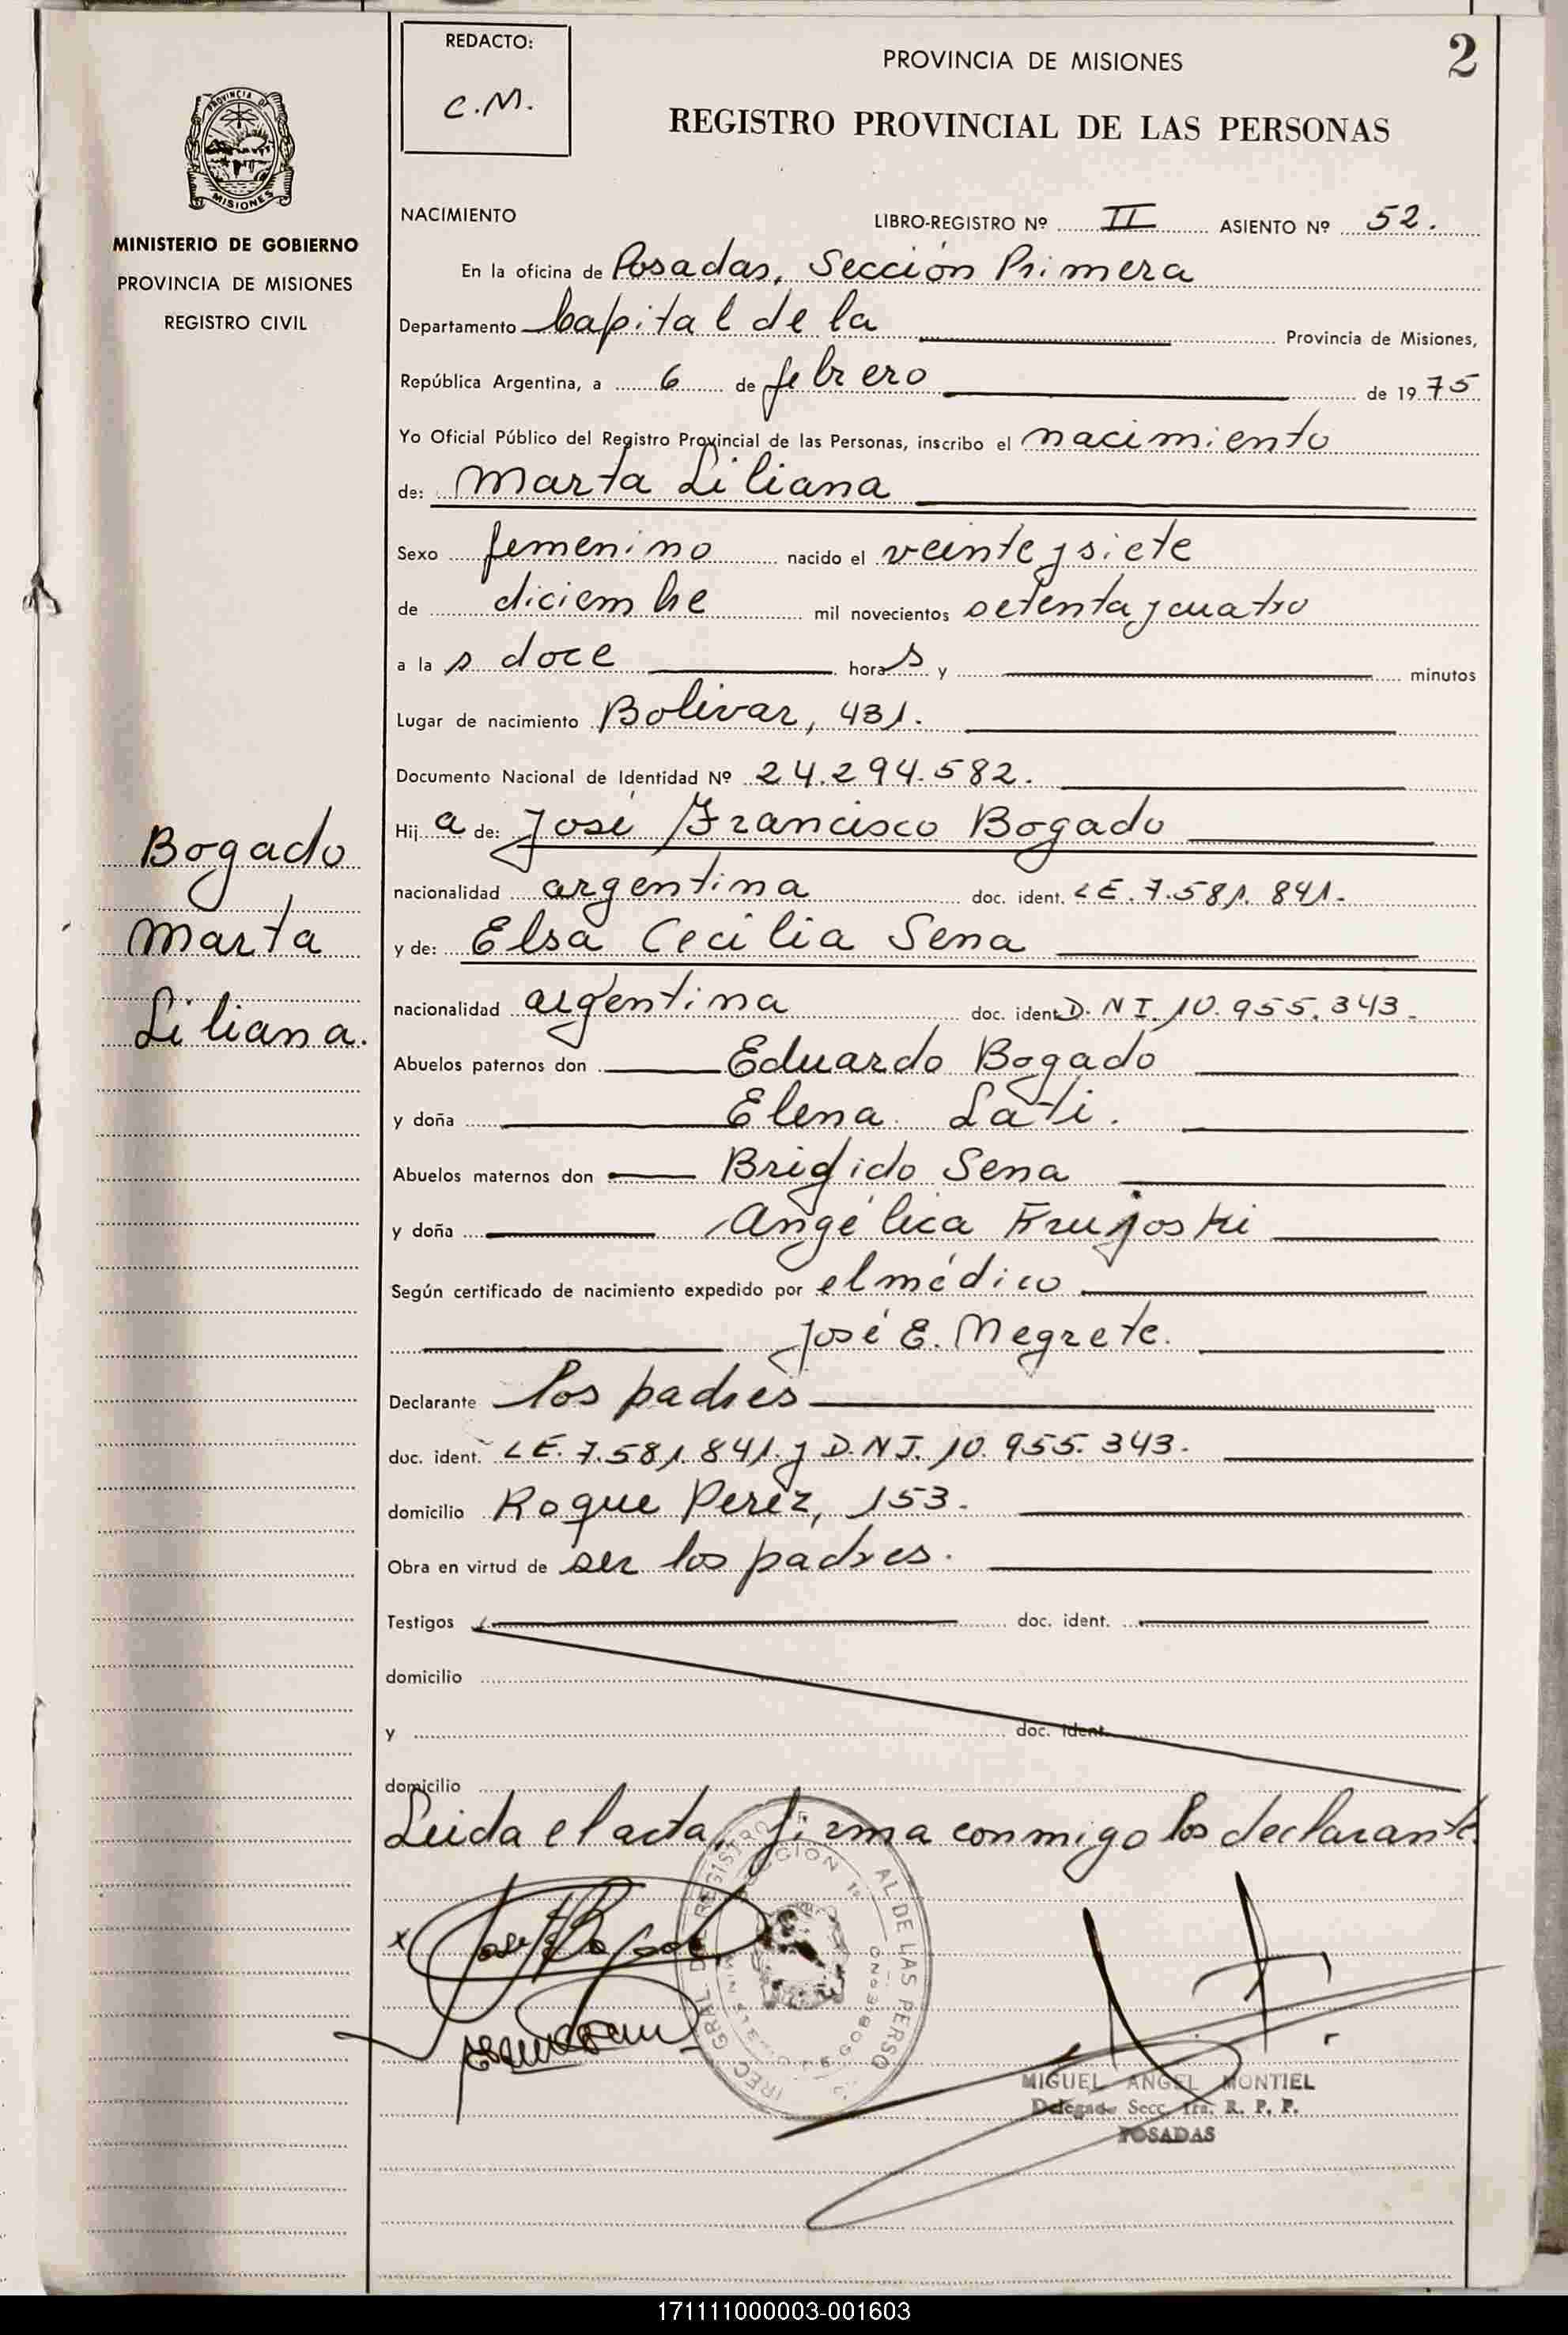 REDACTO:
C.M.
PROVINCIA DE MISIONES
2
REGISTRO PROVINCIAL DE LAS PERSONAS
PROVINCIA DE
MISIONES
MINISTERIO DE GOBIERNO
PROVINCIA DE MISIONES
REGISTRO CIVIL
NACIMIENTO
LIBRO-REGISTRO Nº II ASIENTO Nº 52.
En la oficina de Posadas, Sección Primera
Departamento Capital de la Provincia de Misiones,
República Argentina, a 6 de febrero de 1975
Yo Oficial Público del Registro Provincial de las Personas, inscribo el nacimiento
de: Marta Liliana
Sexo femenino nacido el veinte y siete
de diciembre mil novecientos setenta y cuatro
a las doce horas y minutos
Lugar de nacimiento Bolívar, 431.
Documento Nacional de Identidad Nº 24.294.582.
Hija de: José Francisco Bogado
nacionalidad argentina doc. ident. LE. 7.581.841.
y de: Elsa Cecilia Sena
nacionalidad argentina doc. ident. D.N.I. 10.955.343.
Abuelos paternos don Eduardo Bogado
y doña Elena Lati.
Abuelos maternos don Brígido Sena
y doña Angélica Frujoski
Según certificado de nacimiento expedido por el médico
José E. Negrete.
Declarante los padres
doc. ident. LE. 7.581.841. y D.N.I. 10.955.343.
domicilio Roque Perez, 153.
Obra en virtud de ser los padres.
Testigos doc. ident.
domicilio
y doc. ident.
domicilio
Leida el acta, firma conmigo los declarante
Bogado
Marta
Liliana.
MIGUEL ANGEL MONTIEL
Delegado Secc. 1ra. R. P. P.
POSADAS
171111000003-001603